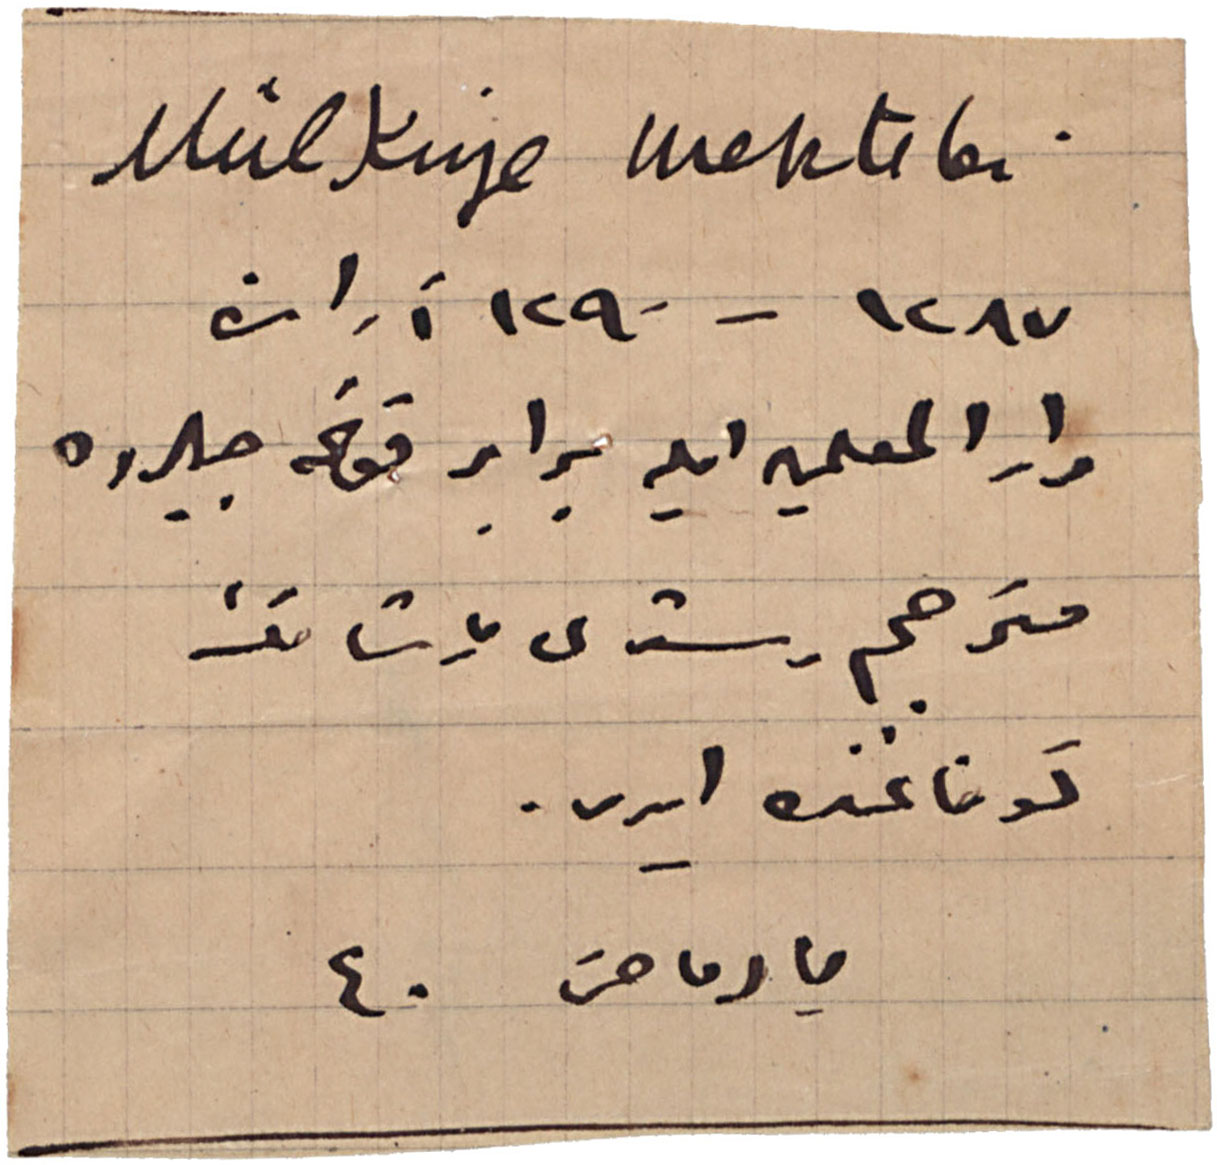 Mülkiye mektebi
١٢٨٧ – ١٢٩٠ آراسنده
دار المعلمين ايله برابر قوجه جيلرده
مترجم رشدى پاشانك
قوناغنده ايدى .
٤٠